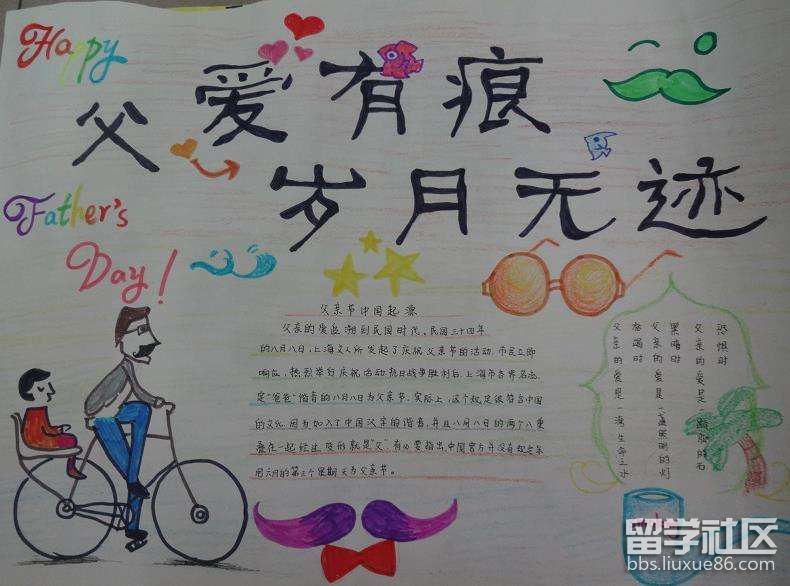 Happy
父爱有痕
岁月无迹
Father's
Day!
父亲节中国起源
父亲的发起溯到民国时代。民国三十四年
的八月八日，上海文人所发起了庆祝父亲节的活动，市民立即
响应，热烈举行庆祝活动。抗日战争胜利后，上海市各界名流
定“爸爸”谐音的八月八日为父亲节。实际上，这个规定很符合中国
的文化，因为加入了中国父亲的谐音，并且八月八日的两个八重
叠在一起经过变形就是“父”。有必要指出中国官方并没有规定采
用六月的第三个星期天为父亲节。
恐惧时
父亲的爱是一踏脚的石
黑暗时
父亲的爱是一盏照明的灯
枯竭时
父亲的爱是一湾生命之水
留学社区
bbs.liuxue86.com